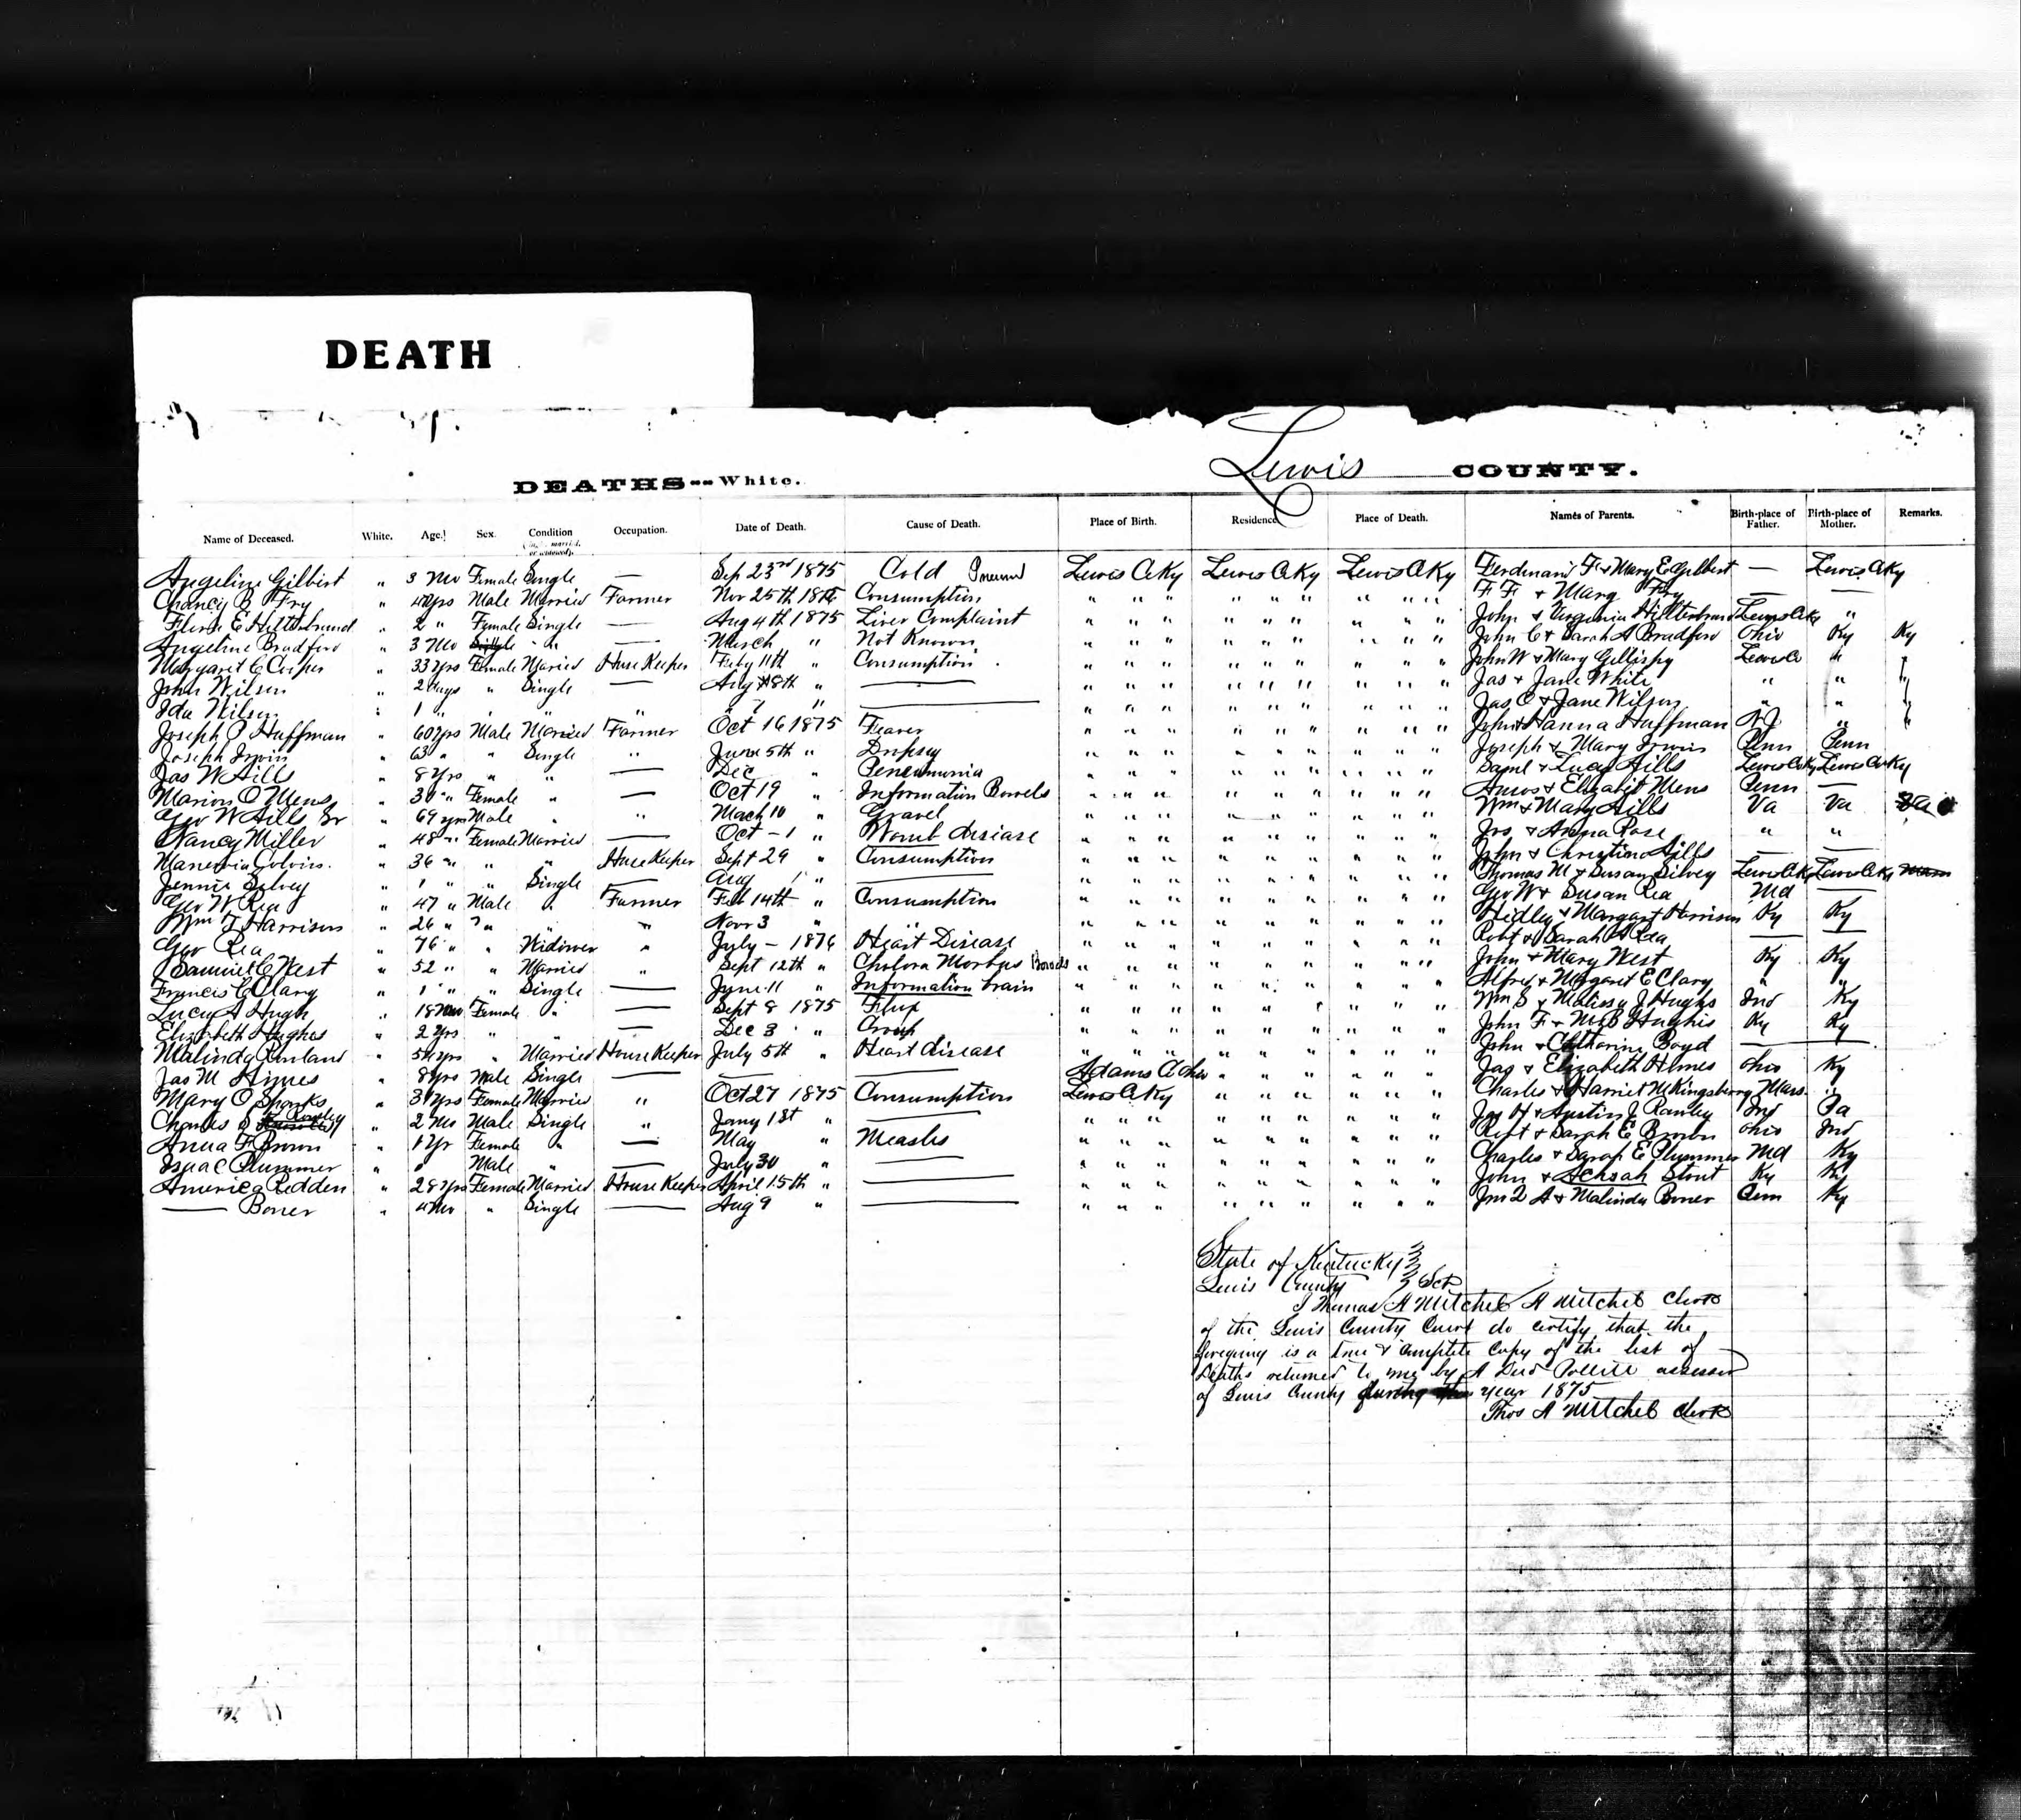 DEATH
DEATHS--White. Lewis COUNTY.
Name of Deceased. White. Age. Sex. Condition (single, married, or widowed). Occupation. Date of Death. Cause of Death. Place of Birth. Residence. Place of Death. Names of Parents. Birth-place of Father. Birth-place of Mother. Remarks.
Angeline Gilbert " 3 Mo Female Single — Sep 23rd 1875 Cold Lewis C Ky Lewis C Ky Lewis C Ky Ferdinand F & Mary E Gilbert — Lewis C Ky
Chancy B Fry " yrs Male Married Farmer Nov 25th Consumption " " " " " " " " " F. F. & Mary Fry — —
E Hiltibrand " 2 " Female Single — Aug 4th 1875 Liver Complaint " " " " " " " " " John & Virginia Hiltibrand Lewis C Ky "
Angeline Bradford " 3 Mo " — March " Not Known " " " " " " " " " John C & Sarah A Bradford Ohio Ky Ky
Margaret C Cooper " 33 yrs Female Married House Keeper Feby 11th " Consumption " " " " " " " " " John W & Mary Gillispy Lewis C "
John Wilson " 2 Days " Single — Aug 8th " — " " " " " " " " " Jas & Jane White " "
Ida Wilson " 1 " " " " " " — " " " " " " " " " Jas C & Jane Wilson " "
Joseph Huffman " 60 yrs Male Married Farmer Oct 16 1875 Feaver " " " " " " " " " John & Hanna Huffman N J "
Joseph Irwin " 63 " " Single " June 5th " Dropsy " " " " " " " " " Joseph & Mary Irwin Penn Penn
Jas W Hills " 8 yrs " " — Dec " Peneumonia " " " " " " " " " Saml & Lucy Hills Lewis C Ky Lewis Co Ky
Marion O Mens " 30 " Female " — Oct 19 " Information Bowels " " " " " " " " " Amos & Elizabit Mens Penn —
Geo W Hills Sr " 69 yrs Male " " Mach 10 " Gravel " " " " " " " " " Wm & Mary Hills Va Va
Nancy Miller " 48 " Female Married — Oct - 1 " Womb disiase " " " " " " " " " Jos & Anna Rose " "
Colvin " 36 " " " House Keeper Sept 29 " Consumption " " " " " " " " " John & Christina Hills — —
Jennie Silvey " 1 " " Single — Aug 1 " — " " " " " " " " " Thomas M & Susan Silvey Lewis C Ky Lewis C Ky
Geo W Rea " 47 " Male " Farmer Feb 14th " Consumption " " " " " " " " " Geo W & Susan Rea Md —
Wm T Harrison " 26 " " " " Novr 3 " " " " " " " " " " Hedley & Margart Harrison Ky Ky
Geo Rea " 76 " " Widower " July - 1876 Heart Disease " " " " " " " " " Robt & Sarah A Rea — —
Samuel C West " 52 " " Married " Sept 12th " Cholora Morbus Bowels " " " " " " " " " John & Mary West Ky Ky
Francis C Clary " 1 " " Single — June 11 " Information brain " " " " " " " " " Alfred & Margaret E Clary " "
Lucy A Hugh " 18 Mo Female " — Sept 8 1875 Flux " " " " " " " " " Wm S & Malissy J Hughs Ind Ky
Elizabeth Hughes " 2 yrs " " — Dec 3 " Croup " " " " " " " " " John F & M B Hughis Ky Ky
Malinda Rowland " yrs " Married House Keeper July 5th " Heart disease " " " " " " " " " John & Catharine Boyd —
Jas M Himes " 8 yrs Male Single — — — Adams C Ohio " " " " " " Jas & Elizabeth Himes Ohio Ky
Mary C Sparks " yrs Female Married " Oct 27 1875 Consumption Lewis C Ky " " " " " " Charles & Harriet M Kingsberry Mass "
Charles Rawley " 2 Mo Male Single " Jany 1st " — " " " " " " " " " Jas H & Austin J Rawley Ind Pa
Anna F Brown " 1 yr Female " — May " Measles " " " " " " " " " Robt & Sarah E Brown Ohio Ind
Isaac Plummer " " Male " — July 30 " — " " " " " " " " " Charles & Sarah E Plummer Md Ky
America Redden " 28 yrs Female Married House Keeper April 15th " — " " " " " " " " " John & Achsah Stout Ky Ky
— Boner " 4 Mo " Single — Aug 9 " — " " " " " " " " " A & Malinda Boner Penn Ky
State of Kentucky
Lewis County Sct
I Thomas A Mitchel A Mitchel Clerk
of the Lewis County Court do certify that the
foregoing is a true & complete copy of the list of
Deaths returned to me by assessor
of Lewis County during the year 1875
Thos A Mitchel Clerk